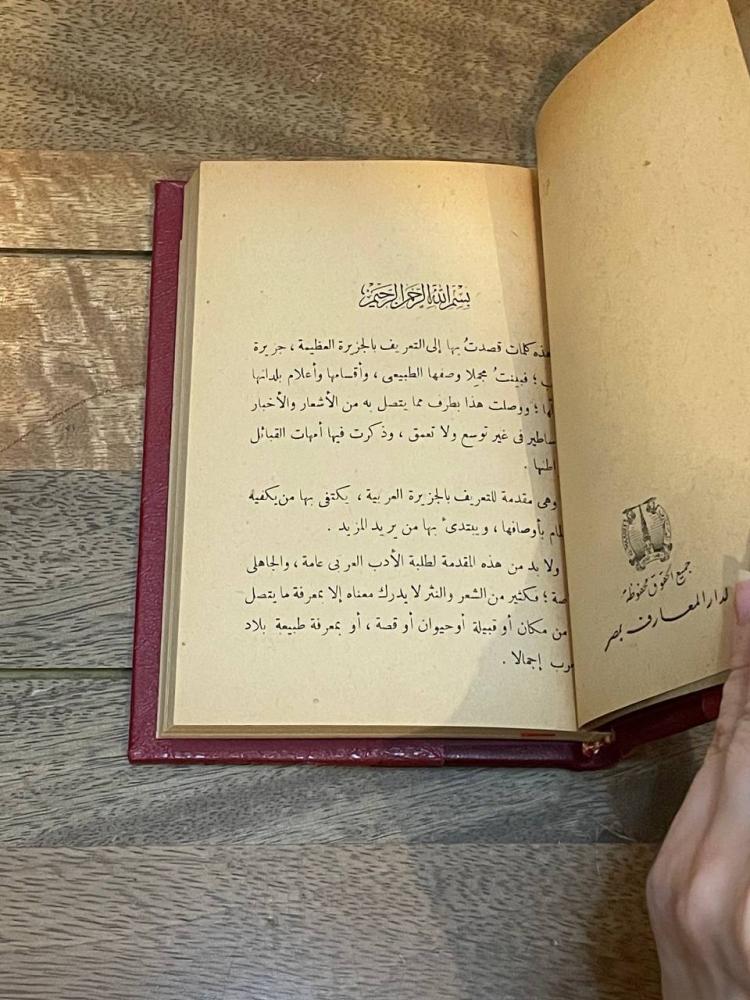 جميع الحقوق محفوظة
لدار المعارف بمصر
بسم الله الرحمن الرحيم
هذه كلمات قصدتُ بها إلى التعريف بالجزيرة العظيمة ، جزيرة
؛ فبينتُ مجملا وصفها الطبيعى ، وأقسامها وأعلام بلدانها
؛ ووصلت هذا بطرف مما يتصل به من الأشعار والأخبار
فى غير توسع ولا تعمق ، وذكرت فيها أمهات القبائل
وهى مقدمة للتعريف بالجزيرة العربية ، يكتفى بها من يكفيه
بأوصافها ، ويبتدئ بها من يريد المزيد .
ولا بد من هذه المقدمة لطلبة الأدب العربى عامة ، والجاهلى
؛ فكثير من الشعر والنثر لا يدرك معناه إلا بمعرفة ما يتصل
من مكان أو قبيلة أو حيوان أو قصة ، أو بمعرفة طبيعة بلاد
إجمالا .